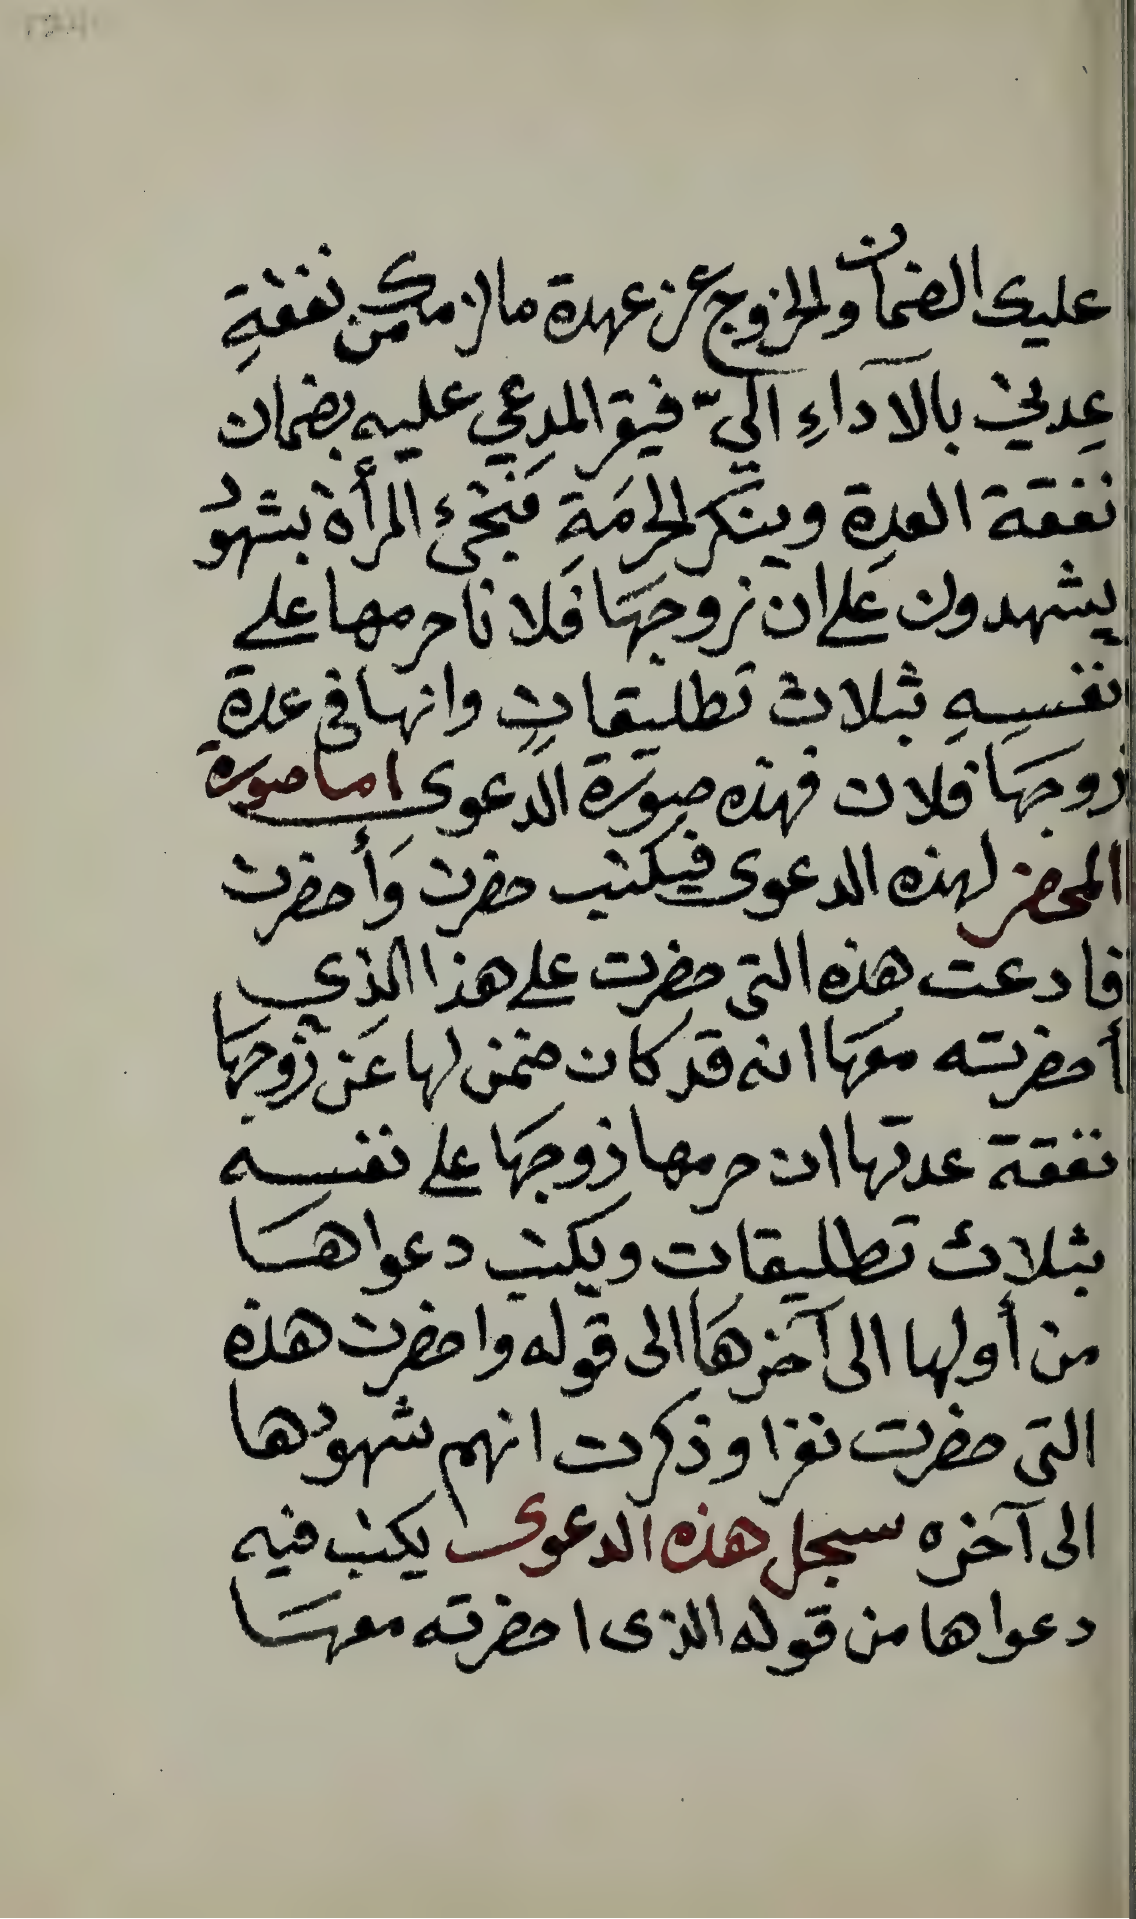 عليك الضمان والخروج عن عهدة ما لزمك من نفقةِ
عِدتي بالاداءِ اليّ فيقر المدعي عليه بضمان
نفقة العدة وينكر الحرمَةِ فتجئ المرأة بشهود
يشهدون على ان زوجهَا فلانا حرمها على
نفسِهِ بثلاث تطليقاتٍ وانها فى عدة
زوجهَا فلان فهذه صورة الدعوى اما صورة
المحضر لهذه الدعوى فيكتب حضرت وَأحضرت
فادعت هذه التى حضرت على هذا الذي
أحضرته معهَا انه قد كان ضمن لها عَن زَوجهَا
نفقة عدتها ان حرمها زوجهَا على نفسه
بثلاث تطليقات ويكتب دعواهَا
من أولها الى آخرهَا الى قوله واحضرت هذه
التى حضرت نفرا وذكرت انهم شهودها
الى آخره سجل هذه الدعوى يكتب فيه
دعواها من قوله الذى احضرته معهَا